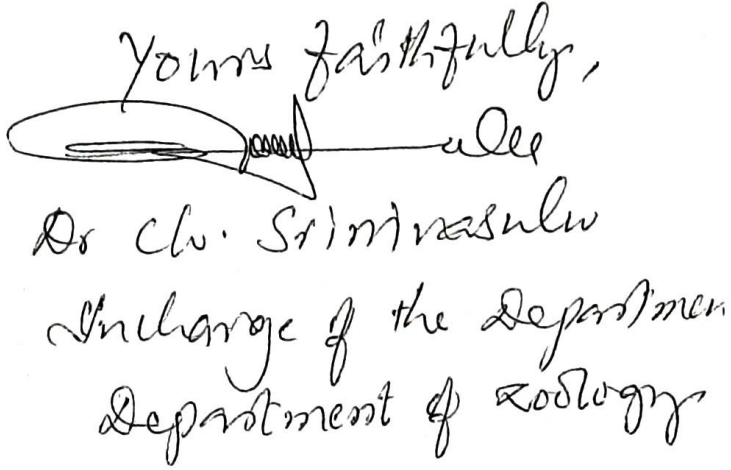 Yours faithfully,
Dr Ch. Srinivasulu
Incharge of the Departmen
Department of Zoology